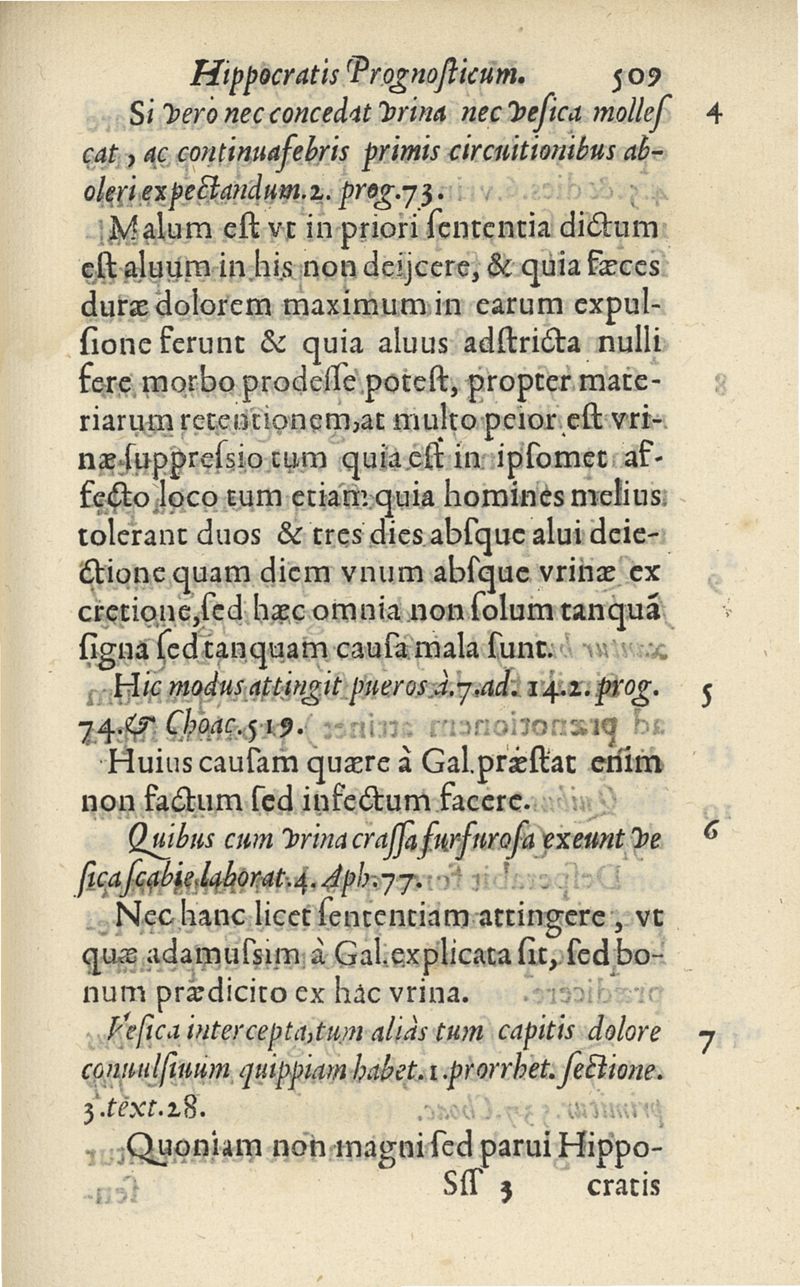 Hippocratis Prognosticum. 509
Si vero nec concedat vrina nec vesica molles 4
cat, ac continua febris primis circuitionibus ab-
oleri expectandum. 2. prog. 73.
Malum eſt vt in priori ſententia dictum
eſt aluum in his non deijcere, & quia fæces
duræ dolorem maximum in earum expul-
ſione ferunt & quia aluus adſtricta nulli
fere morbo prodeſſe poteſt, propter mate-
riarum retentionem, at multo peior eſt vri-
næ ſuppreſsio tum quia eſt in ipſomet af-
fecto loco tum etiam quia homines melius
tolerant duos & tres dies abſque alui deie-
ctione quam diem vnum abſque vrinæ ex
cretione, ſed hæc omnia non ſolum tanquā
ſigna ſed tanquam cauſa mala ſunt.
Hic modus attingit pueros à. 7. ad. 14. 2. prog. 5
74. & Choac. 519.
Huius cauſam quære à Gal. præſtat enim
non factum ſed infectum facere.
Quibus cum vrina craſſa furfuroſa exeunt ve 6
ſica ſcabie laborat. 4. Aph. 77.
Nec hanc licet ſententiam attingere, vt
quæ adamuſsim à Gal. explicata ſit, ſed bo-
num prædicito ex hac vrina.
Veſica intercepta, tum aliàs tum capitis dolore 7
conuulſiuum quippiam habet. 1. prorrhet. ſectione.
3. text. 28.
Quoniam non magni ſed parui Hippo-
Sſſ 3 cratis